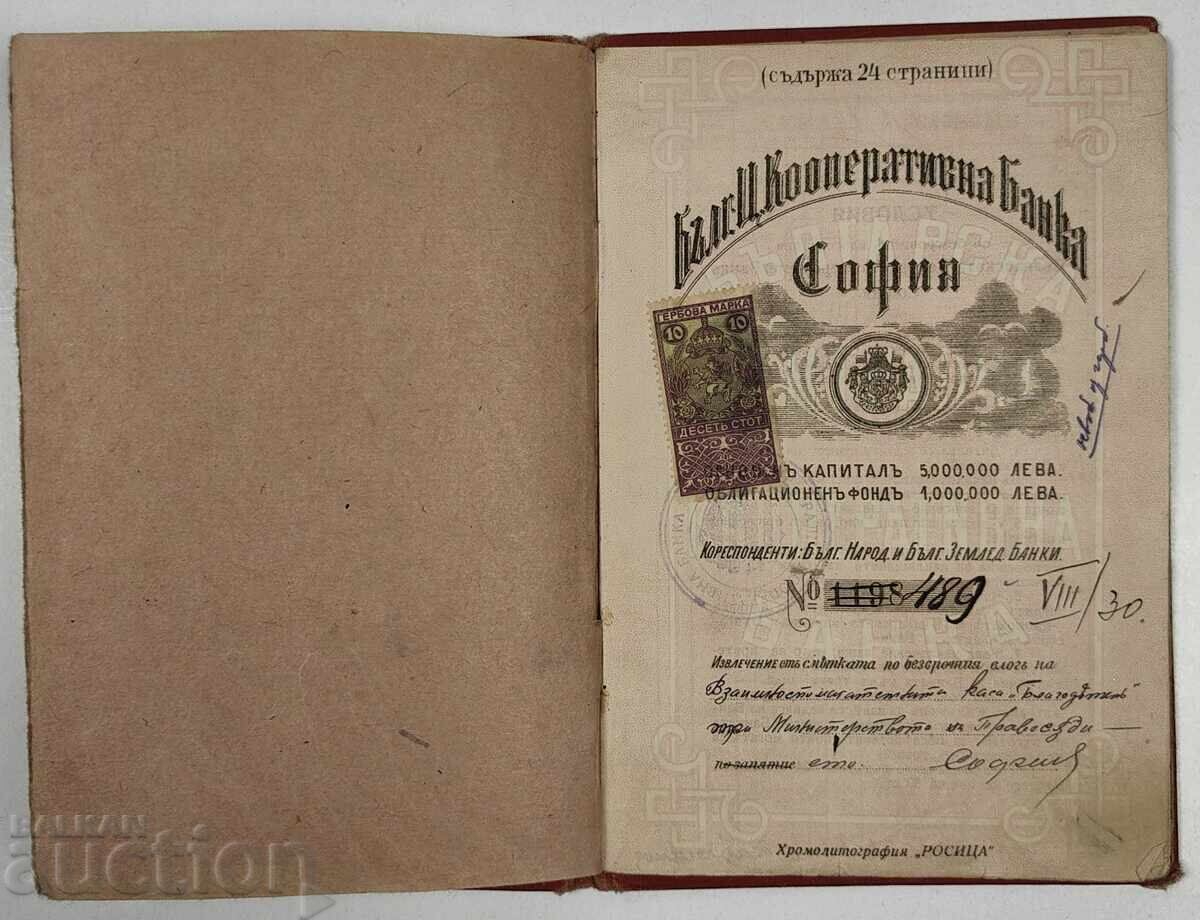 (съдържа 24 страници)
Бълг. Ц. Кооперативна Банка
София
ГЕРБОВА МАРКА
10 10
ДЕСЕТЬ СТОТ
КАПИТАЛЪ 5,000,000 ЛЕВА.
ОБЛИГАЦИОНЕНЪ ФОНДЪ 1,000,000 ЛЕВА.
КОРЕСПОНДЕНТИ: БЪЛГ. НАРОД. И БЪЛГ. ЗЕМЛЕД. БАНКИ.
№ 1198 489 VIII/30.
Извлечение отъ смѣтката по безсрочния влогъ на
Взаимоспомагателната каса „Благодѣтель“
при Министерството на Правосѫди—
по занятие сто. София
Хромолитография „РОСИЦА“
BALKAN
auction